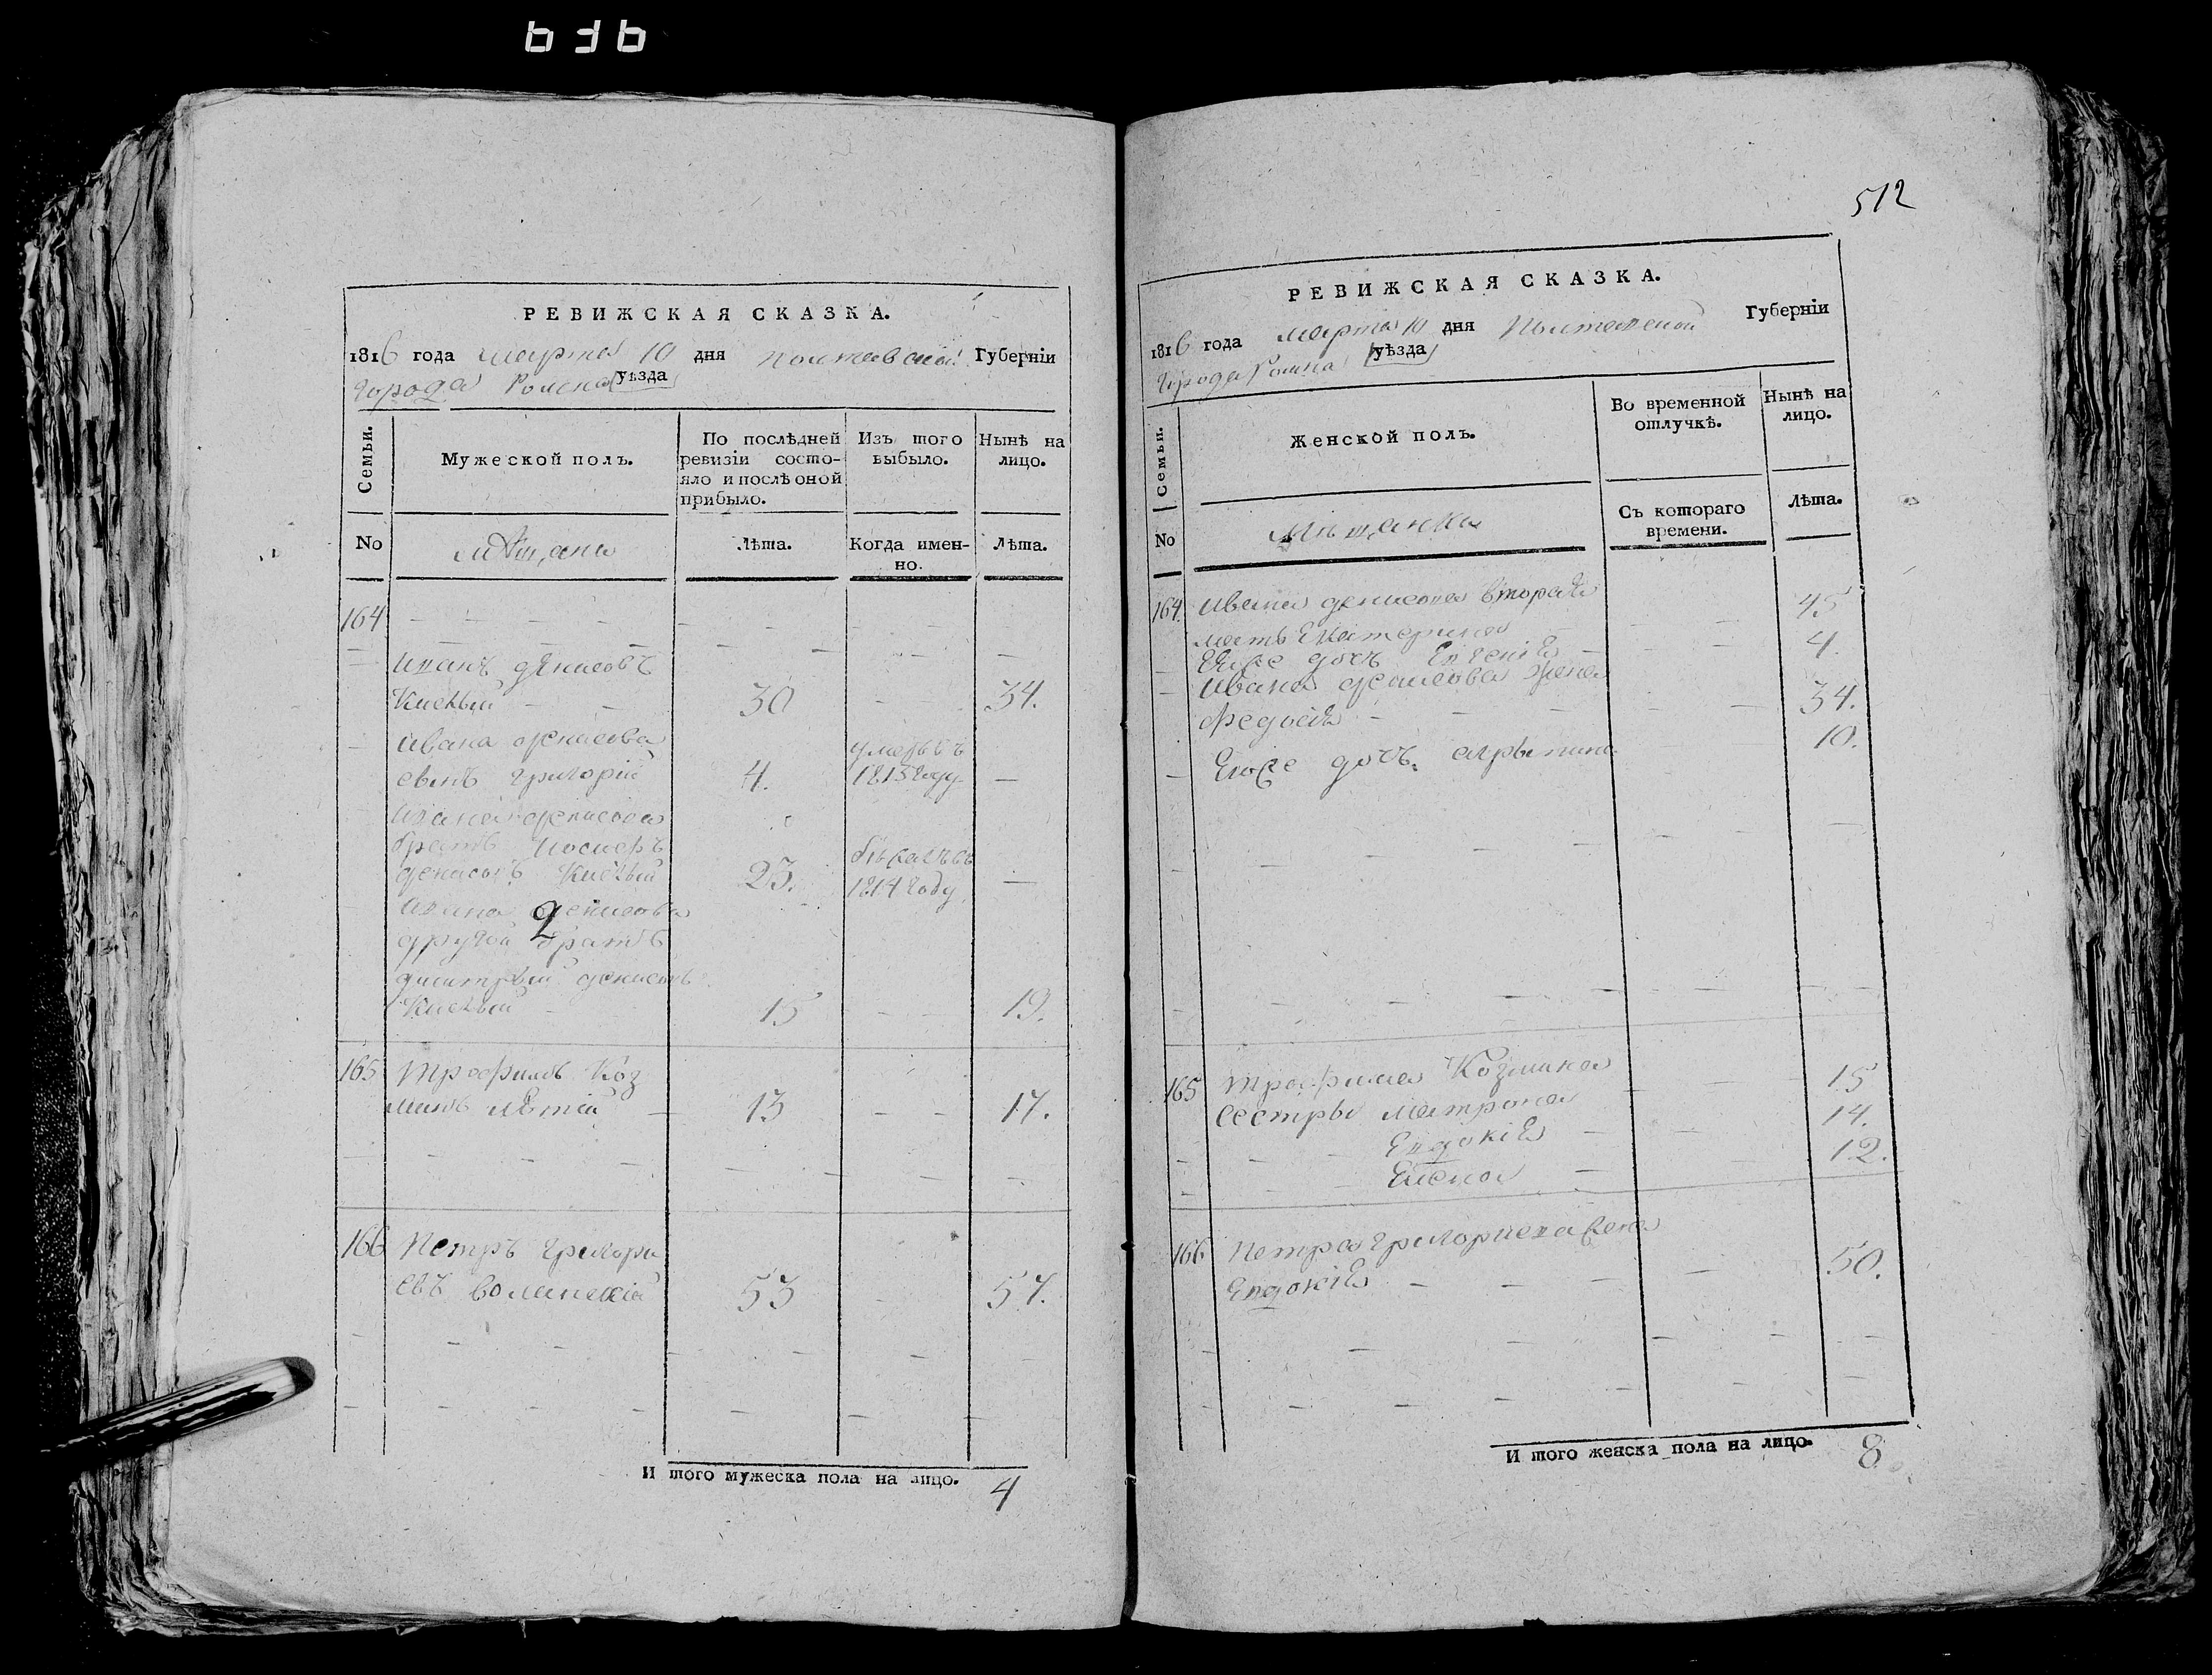 РЕВИЖСКАЯ СКАЗКА.
1816 года марта 10 дня Полтавской Губерніи
города Ромна уѣзда
Семьи.
Мужеской полъ.
По послѣдней ревизіи состояло и послѣ оной прибыло.
Изъ того выбыло.
Нынѣ на лицо.
No
Мѣщане
Лѣта.
Когда именно.
Лѣта.
164
Иванъ Денисовъ
30 34.
Ивана Денисова умеръ въ
сынъ Григорій 4. 1813 году —
Ивана Денисова
братъ
Денисовъ 23. 1814 году —
Ивана Денисова
2
другой братъ
Дмитрый Денисовъ
15 19.
165 Трофимъ Коз
минъ 13 17.
166 Петръ Григори
евъ Волинскій 53 57.
И того мужеска пола на лицо. 4
512
РЕВИЖСКАЯ СКАЗКА.
1816 года марта 10 дня Полтавской Губерніи
города Ромна уѣзда
Семьи.
Женской полъ.
Во временной отлучкѣ.
Нынѣ на лицо.
No
Мѣщанки
Съ котораго времени.
Лѣта.
164. Ивана Денисова вторая
мать Екатерина 45
Еюже дочь Евгенія 4.
Ивана Денисова жена
Федосія 34.
Еюже дочь Агрыпина 10.
165 Трофима Козмина
сестры Матрона 15
Евдокія 14.
Елена 12.
166 Петра Григориева жена
Евдокія 50.
И того женска пола на лицо. 8